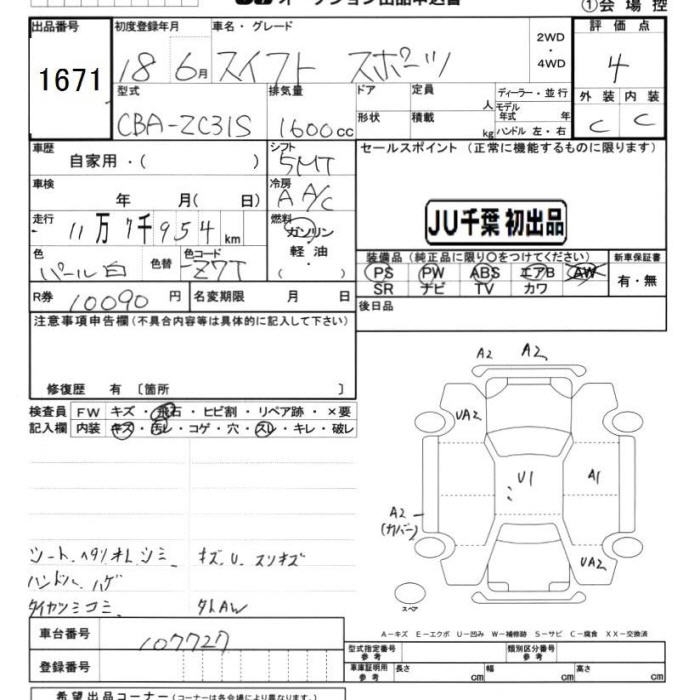 ①会場控
出品番号
1671
初度登録年月
18 6月
車名・グレード
スイフト スポーツ
2WD
・
4WD
評価点
4
型式
CBA-ZC31S
排気量
1600cc
ドア
形状
定員
人
積載
kg
ディーラー・並行
モデル年式 年
ハンドル 左・右
外装
C
内装
C
車歴
自家用・( )
シフト
5MT
セールスポイント (正常に機能するものに限ります)
車検
年 月( 日)
冷房
A A/C
JU千葉 初出品
走行
11万 7千 954 km
燃料
ガソリン
軽油
・
色
パール白
色替
色コード
Z7T
装備品 (純正品に限り○をつけてください)
PS PW ABS エアB AW
SR ナビ TV カワ
新車保証書
有・無
R券 10090 円
名変期限 月 日
後日品
注意事項申告欄(不具合内容等は具体的に記入して下さい)
修復歴 有 〔箇所 〕
検査員
記入欄
FW キズ・飛石・ヒビ割・リペア跡・×要
内装 キズ・汚レ・コゲ・穴・スレ・キレ・破レ
A2 A2
UA2
U1
A1
A2
(カバー)
UA2
スペア
シート、ヘタリ オレ シミ キズ.U.スリキズ
ハンドル ハゲ
ダイヤツミコミ タトAW
A-キズ E-エクボ U-凹み W-補修跡 S-サビ C-腐食 XX-交換済
車台番号
107727
登録番号
型式指定番号
参考
類別区分番号
参考
車庫証明用
参考
長さ cm
幅 cm
高さ cm
希望出品コーナー(コーナーは各会場により異なります。)